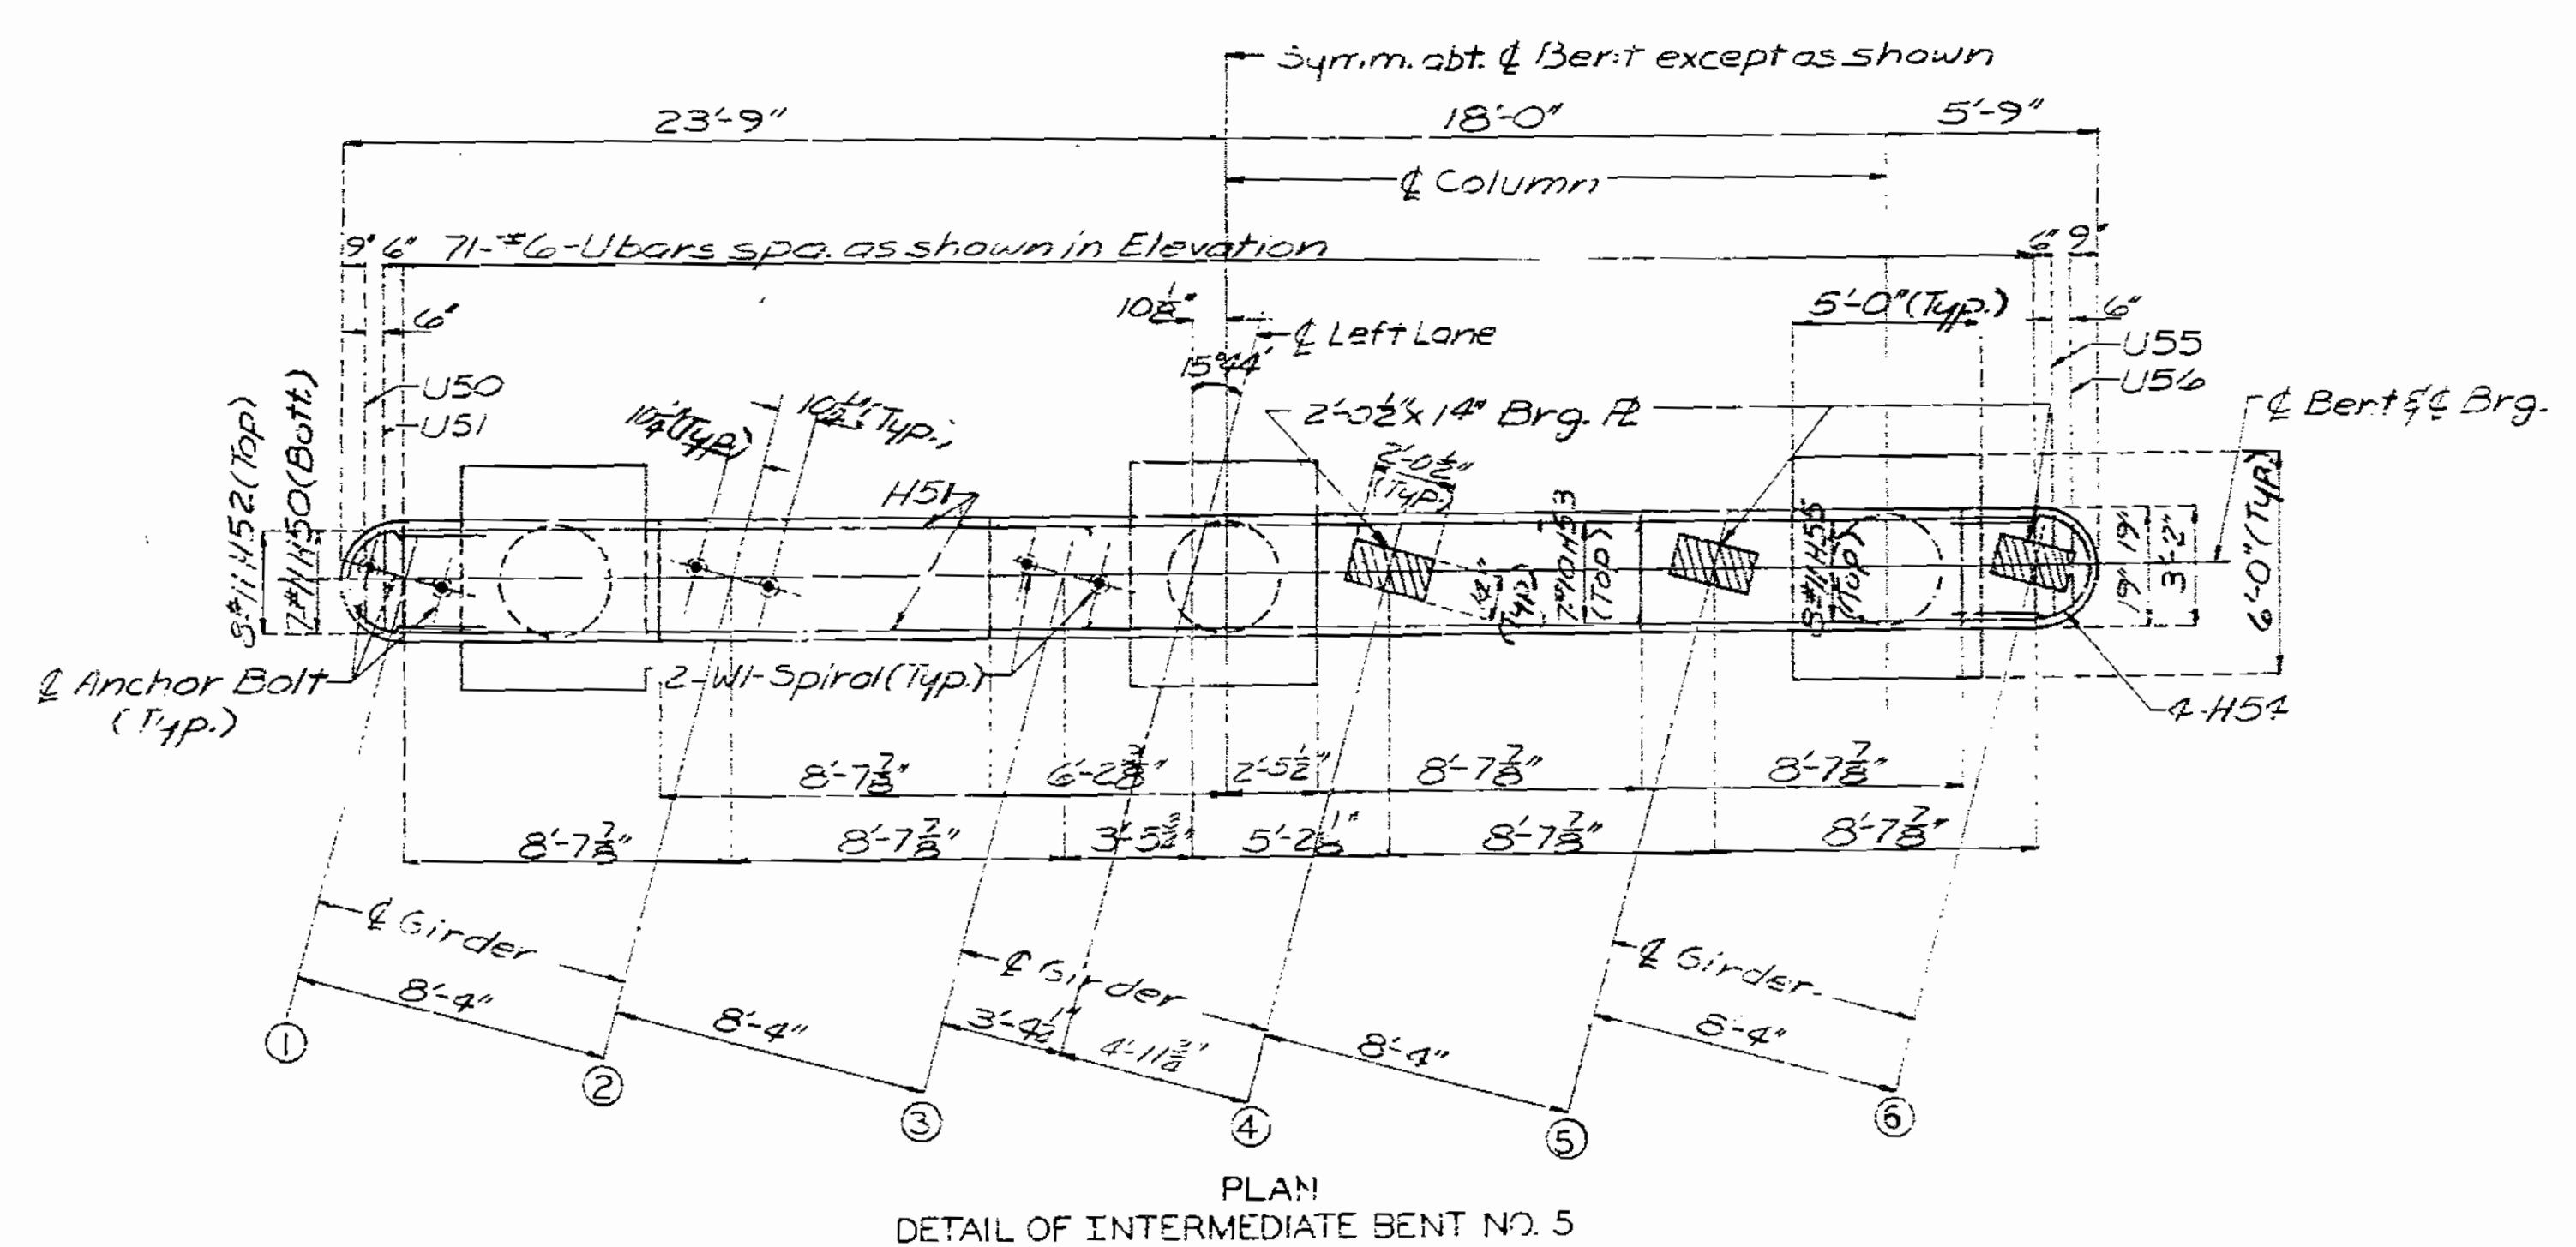 Symm. abt. ℄ Bent except as shown
23'-9" 18'-0" 5'-9"
℄ Column
9" 6" 71-#6-Ubars spa. as shown in Elevation 6" 9"
6" 10½" 5'-0"(Typ.) 6"
℄ Left Lane
15°44'
U50 U55
U51 U56
10¼"(Typ.) 10½"(Typ.)
2'-0½"x14" Brg. ℄
℄ Bent & ℄ Brg.
2'-0½"
(Typ.)
H51
8#11H52(Top)
7#11H50(Bott.)
14"
(Typ.)
7#10H53
(Top)
8#11H55
(Top)
19" 19"
3'-2"
6'-0"(Typ.)
℄ Anchor Bolt
(Typ.)
2-W1-Spiral(Typ.)
4-H54
8'-7⅞" 6'-2⅜" 2'-5½" 8'-7⅞" 8'-7⅞"
8'-7⅞" 8'-7⅞" 5'-2⅛" 8'-7⅞" 8'-7⅞"
℄ Girder ℄ Girder ℄ Girder
8'-4" 8'-4" 3'-4¼" 4'-11¾" 8'-4" 8'-4"
1 2 3 4 5 6
PLAN
DETAIL OF INTERMEDIATE BENT NO. 5